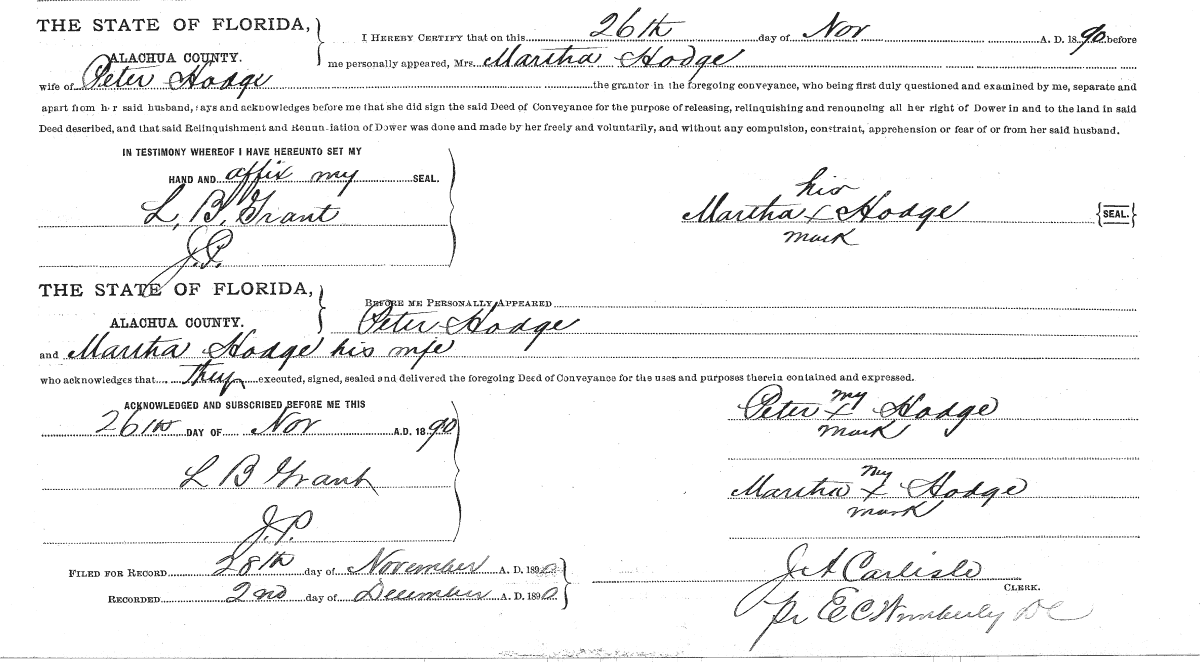 THE STATE OF FLORIDA,
ALACHUA COUNTY.
I HEREBY CERTIFY that on this 26th day of Nov A. D. 1890 before
me personally appeared, Mrs. Martha Hodge
wife of Peter Hodge the grantor in the foregoing conveyance, who being first duly questioned and examined by me, separate and
apart from her said husband, says and acknowledges before me that she did sign the said Deed of Conveyance for the purpose of releasing, relinquishing and renouncing all her right of Dower in and to the land in said
Deed described, and that said Relinquishment and Renunciation of Dower was done and made by her freely and voluntarily, and without any compulsion, constraint, apprehension or fear of or from her said husband.
IN TESTIMONY WHEREOF I HAVE HEREUNTO SET MY
HAND AND affix my SEAL.
L, B, Grant
J.P.
his
Martha x Hodge {SEAL.}
mark
THE STATE OF FLORIDA,
ALACHUA COUNTY.
BEFORE ME PERSONALLY APPEARED
Peter Hodge
and Martha Hodge his wife
who acknowledges that they executed, signed, sealed and delivered the foregoing Deed of Conveyance for the uses and purposes therein contained and expressed.
ACKNOWLEDGED AND SUBSCRIBED BEFORE ME THIS
26th DAY OF Nov A.D. 1890
L B Grant
J.P.
my
Peter x Hodge
mark
my
Martha x Hodge
mark
FILED FOR RECORD 28th day of November A. D. 1890
RECORDED 2nd day of December A. D. 1890
J A Carlisle
CLERK.
pr E C Wimberly DC